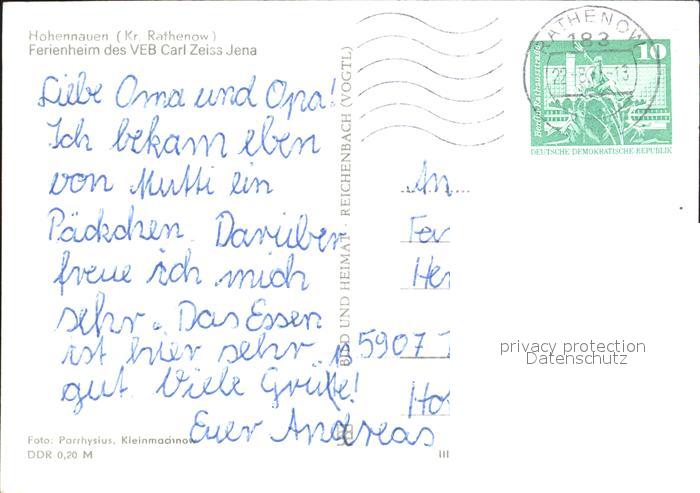 Hohennauen (Kr. Rathenow)
Ferienheim des VEB Carl Zeiss Jena
Liebe Oma und Opa!
Ich bekam eben
von Mutti ein
Päckchen. Darüber
freue ich mich
sehr. Das Essen
ist hier sehr
gut. Viele Grüße!
Euer Andreas
Foto: Parrhysius, Kleinmachnow
DDR 0,20 M
BILD UND HEIMAT REICHENBACH (VOGTL)
III
RATHENOW
183
10
Berlin-Rathausstraße
DEUTSCHE DEMOKRATISCHE REPUBLIK
An
Fa
He
5907
Ho
privacy protection
Datenschutz